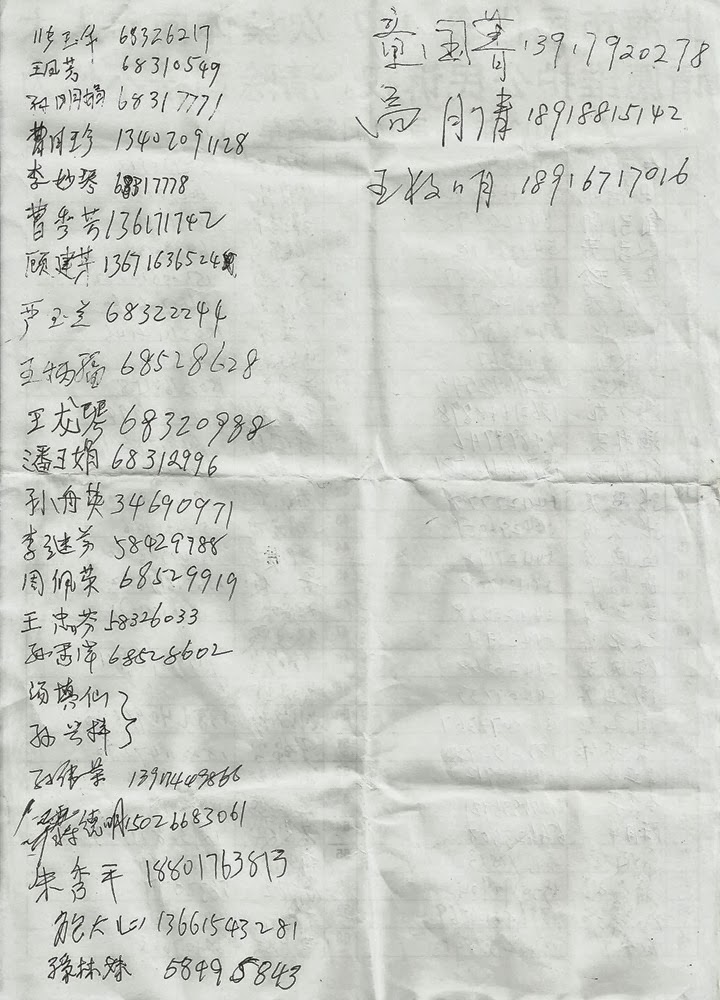 玉华 68326217
王凤芳 68310549
孙明娟 68317771
曹月珍 13402091128
李妙琴 68317778
曹秀芳 136171742
顾建芳 13671636524
严玉兰 68322244
王炳福 68528628
王龙琴 68320988
潘玉娟 68312996
孙舟英 34690971
李继芳 58429788
周佩英 68529919
王忠芬 58326033
孙 岸 68528602
汤 仙
孙兴
孙张荣
德明 15026683061
朱秀平 18801763813
鲍大 13661543281
林妹 58495843
国菁 13917920278
高月清 18918815142
王 明 18916717016